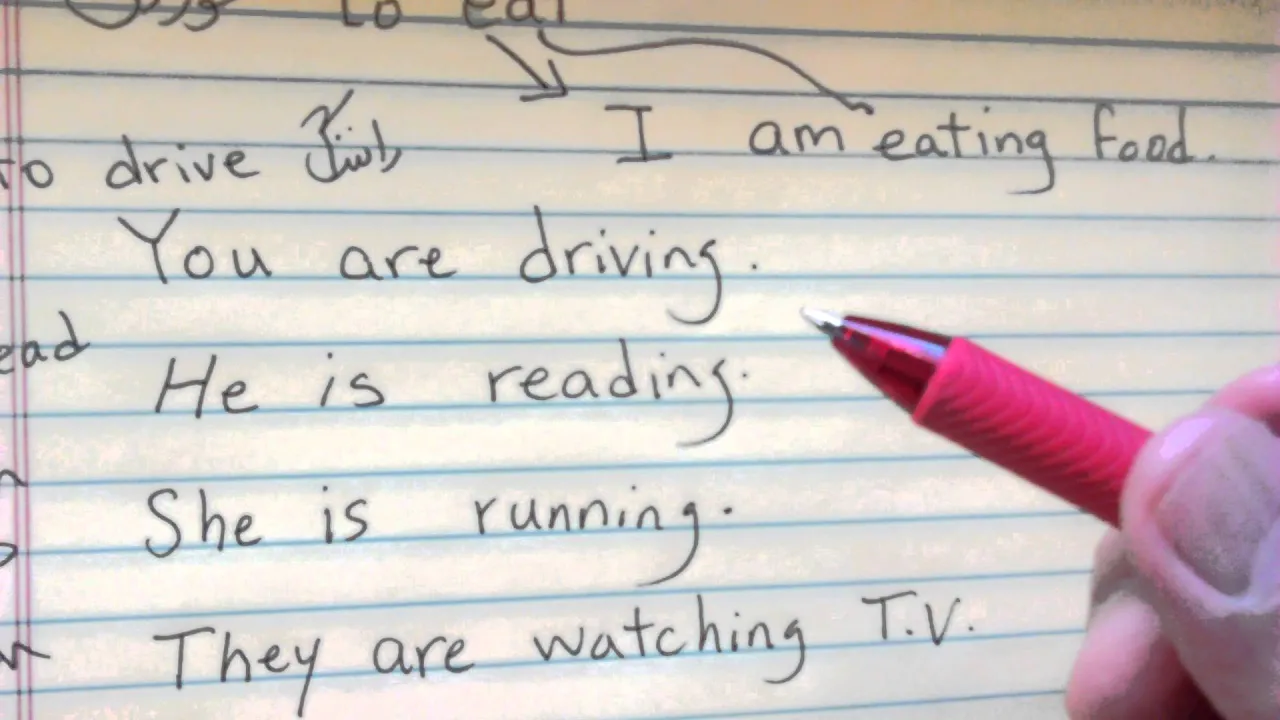 to eat
I am eating food.
to drive
You are driving.
ead
He is reading.
She is running.
They are watching T.V.